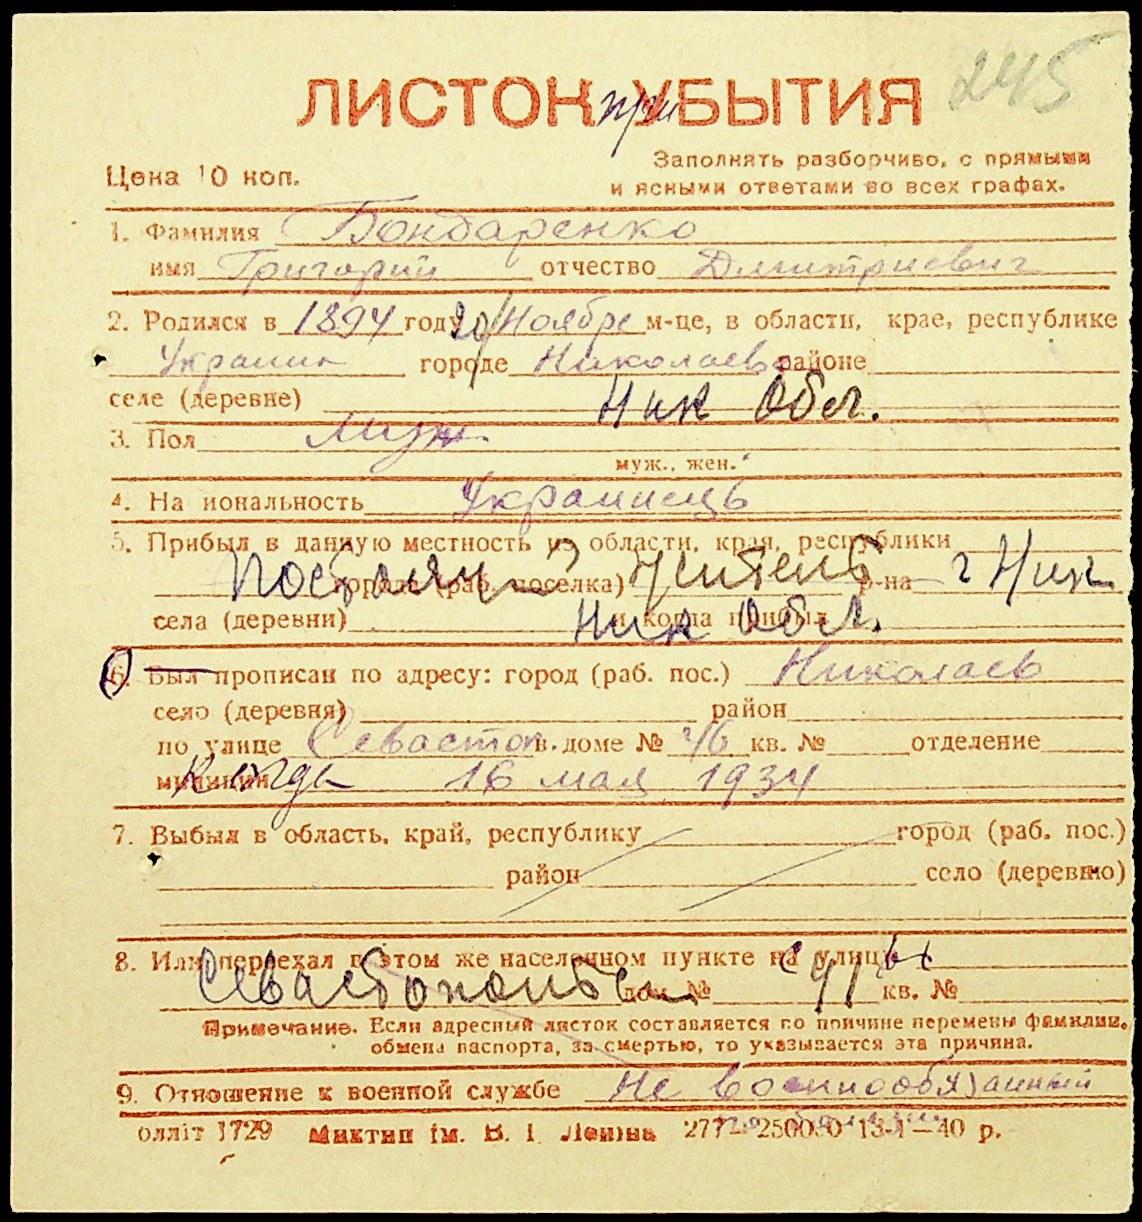 245
ЛИСТОК при УБЫТИЯ
Цена 10 коп.
Заполнять разборчиво, с прямыми
и ясными ответами во всех графах.
1. Фамилия Бондаренко
имя Григорий отчество Дмитриевич
2. Родился в 1894 году 20/ Ноябре м-це, в области, крае, республике
Украина городе Николаев районе
селе (деревне) Ник Обл.
3. Пол муж
муж., жен.
4. На иональность Украинець
5. Прибыл в данную местность из области, края, республики
города (раб. поселка) р-на
Постоян житель г Ник
села (деревни) и когда прибыл
Ник Обл.
6. Был прописан по адресу: город (раб. пос.) Николаев
село (деревня) район
по улице Севастоп. в доме № 46 кв. № отделение
милиции когда 16 мая 1934
7. Выбыл в область, край, республику город (раб. пос.)
район село (деревню)
8. Или переехал в этом же населенном пункте на улицу
Севастопольск дом № 41 кв. №
Примечание. Если адресный листок составляется по причине перемены фамилии,
обмена паспорта, за смертью, то указывается эта причина.
9. Отношение к военной службе Не военнообязанный
олліт 1729 Миктип ім. В. І. Леніна 277— 250000 13-1—40 р.